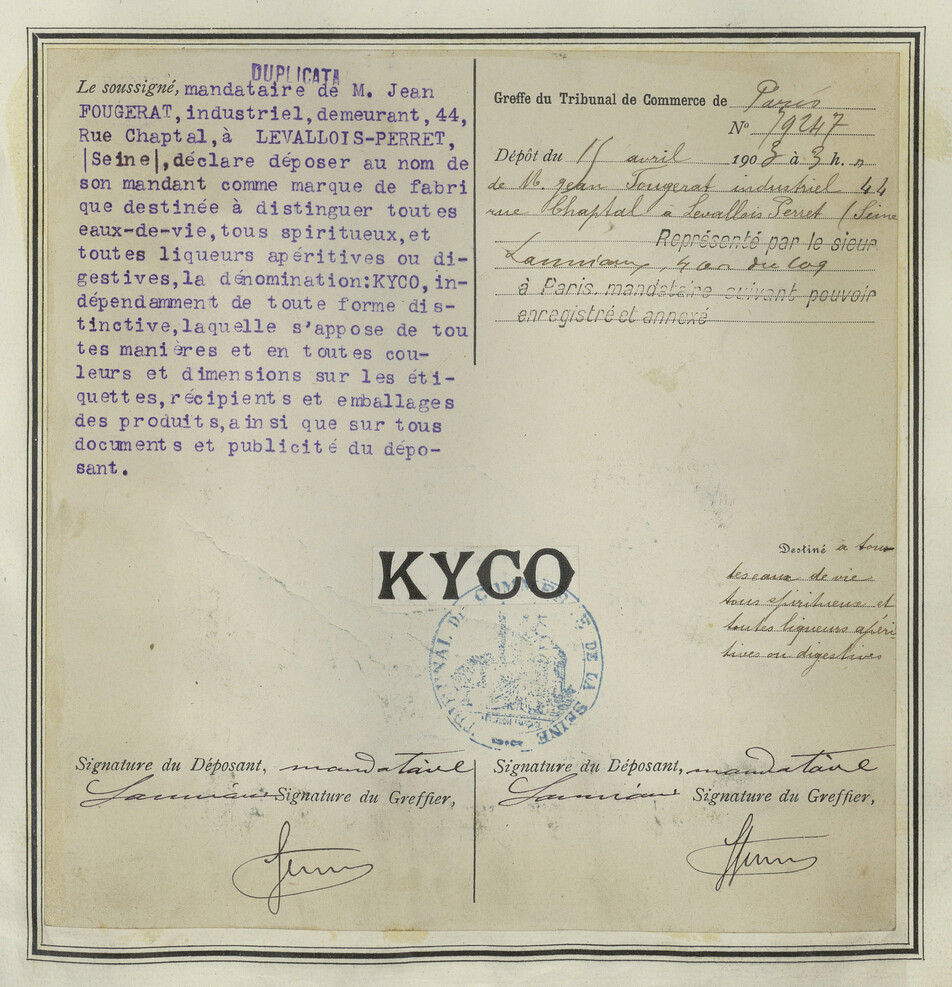 DUPLICATA
Le soussigné, mandataire de M. Jean
FOUGERAT, industriel, demeurant, 44,
Rue Chaptal, à LEVALLOIS-PERRET,
|Seine|, déclare déposer au nom de
son mandant comme marque de fabri
que destinée à distinguer toutes
eaux-de-vie, tous spiritueux, et
toutes liqueurs apéritives ou di-
gestives, la dénomination: KYCO, in-
dépendamment de toute forme dis-
tinctive, laquelle s'appose de tou
tes manières et en toutes cou-
leurs et dimensions sur les éti-
quettes, récipients et emballages
des produits, ainsi que sur tous
documents et publicité du dépo-
sant.
Greffe du Tribunal de Commerce de Paris
N° 79247
Dépôt du 15 avril 1903 à 3 h.
de M. Jean Fougerat industriel 44
rue Chaptal à Levallois Perret (Seine
Représenté par le sieur
à Paris. mandataire suivant pouvoir
enregistré et annexé
KYCO
TRIBUNAL DE COMMERCE DE LA SEINE
Destiné à tou
tes eaux de vie
tous spiritueux et
toutes liqueurs apéri
tives ou digestives
Signature du Déposant, mandataire
Signature du Greffier,
Signature du Déposant, mandataire
Signature du Greffier,